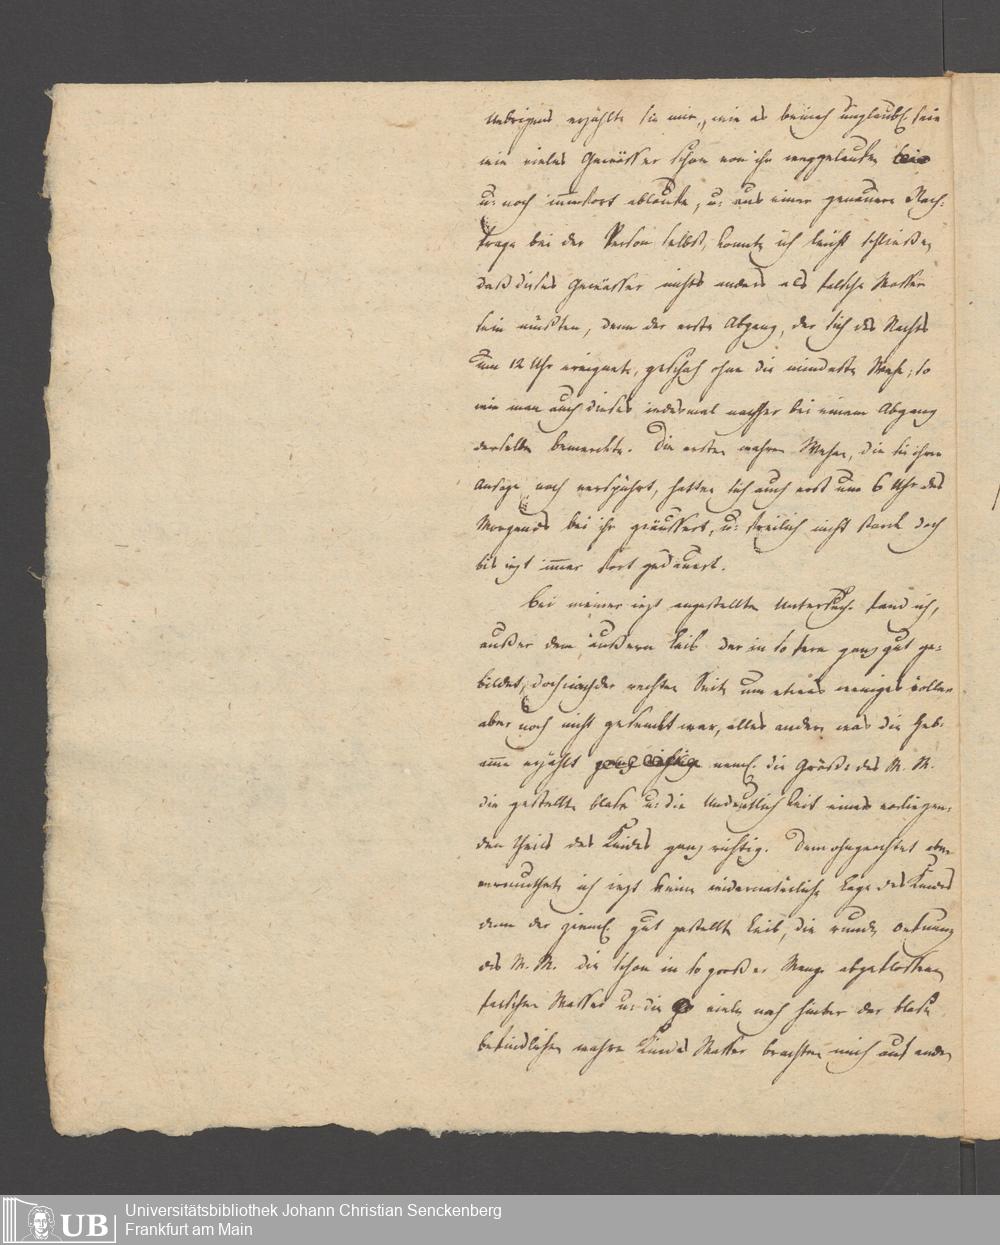 Uebrigens erzählte sie mir, wie es beinah unglaubl. sein
wie vieles Gewässer schon von ihr weggelaufen sei
u: noch immerfort ablaufe, u: aus einer genauern Nach-
frage bei der Person selbst, konnte ich leicht schließen,
daß dieses Gewässer nichts anders als falsche Wasser
sein müßten, denn der erste Abgang, der sich des Nachts
um 12 Uhr ereignete, geschah ohne die mindeste Wehe; so
wie man auch dieses jedesmal nachher bei einem Abgang
derselben bemerckte. Die ersten wahren Wehen, die sie ihrer
Aussage nach verspührt, hatten sich auch erst um 6 Uhr des
Morgends bei ihr geäussert, u: freilich nicht starck doch
bis izt immer fort gedauert.
Bei meiner izt angestellten Untersuch. fand ich,
außer dem äußern Leib der in so fern ganz gut ge-
bildet, doch nach der rechten Seite um etwas weniges voller
aber noch nicht gesenckt war, alles andere was die Heb-
amme erzählt nemł. die Größe des M. M.
die gestellte blase u: die Undeutlichkeit eines vorliegen-
den Theils des Kindes ganz richtig. Demohngeachtet aber
vermuthete ich izt keine widernatürliche Lage des Kindes
denn der zieml. gut gestellte Leib, die runde Oefnung
des M. M. die schon in so großer Menge abgeflossene
falsche Wasser u: die viele noch hinter der blase
befindlichen wahre Kindes Wasser brachten mich auf andere
Universitätsbibliothek Johann Christian Senckenberg
Frankfurt am Main
UB